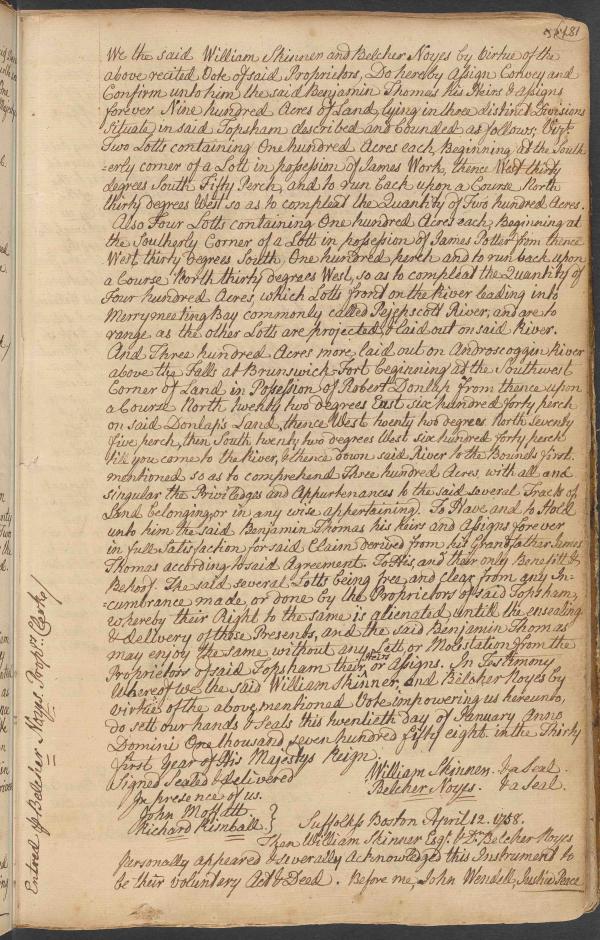 181
We the said William Skinner and Belcher Noyes by Virtue of the
above recited Vote of said Proprietors, Do hereby Assign Convey and
Confirm unto him the said Benjamin Thomas his Heirs & Assigns
forever Nine hundred Acres of Land, lying in three distinct Divisions
Situate in said Topsham described and bounded as follows, Vizt.
Two Lotts containing One hundred Acres each, Beginning at the South
=erly corner of a Lott in possession of James Work, thence West thirty
degrees South Fifty Perch, and to run back upon a Course North
thirty degrees West so as to compleat the Quantity of Two hundred Acres.
Also Four Lotts containing One hundred Acres each, Beginning at
the Southerly Corner of a Lott in possession of James Potter from thence
West thirty degrees South, One hundred perch and to run back upon
a Course North thirty degrees West, so as to compleat the Quantity of
Four hundred Acres, which Lotts front on the River leading into
Merrymeeting Bay commonly called Pejepscott River, and are to
range as the other Lotts are projected & laid out on said River.
And Three hundred Acres more, laid out on Androscoggin River
above the Falls at Brunswick-Fort beginning at the Southwest
Corner of Land in Possession of Robert Donlap from thence upon
a Course North twenty two degrees East six hundred forty perch
on said Donlaps Land, thence West twenty two degrees North Seventy
five perch, then South twenty two degrees West six hundred forty perch
till you come to the River, & thence down said River to the Bounds first
mentioned so as to comprehend Three hundred Acres, with all and
singular the Priviledges and Appurtenances to the said several Tracts of
Land belonging, or in any wise appertaining. To Have and to Hold
unto him the said Benjamin Thomas his heirs and Assigns forever
in full Satisfaction for said Claim derived from his Grandfather James
Thomas according to said Agreement. To His, and their only Benefitt &
Behoof. The said several Lotts being free and clear from any In-
=cumbrance made or done by the Proprietors of said Topsham,
whereby their Right to the same is alienated untill the ensealing
& delivery of these Presents, and the said Benjamin Thomas
may enjoy the same without any Lett, or Molestation from the
Proprietors of said Topsham their Heirs or Assigns. In Testimony
Whereof we the said William Skinner and Belcher Noyes by
virtue of the above mentioned Vote impowering us hereunto,
do sett our hands & Seals this twentieth day of January Anno
Domini One thousand seven hundred fifty eight in the Thirty
first Year of His Majestys Reign.
Signed Sealed & delivered
In presence of us.
John Moffatt.
Richard Kimball. }
William Skinner. & a Seal.
Belcher Noyes. & a Seal.
Suffolk ss Boston April 12. 1758.
Then William Skinner Esqr. & Dr. Belcher Noyes
Personally appeared & severally Acknowledged this Instrument to
be their voluntary Act & Deed. Before me, John Wendell, Justice Peace
Entred p Belcher Noyes. Proprs. Clerke /